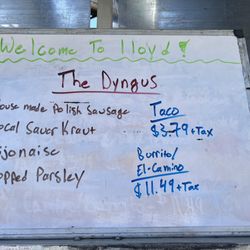 Welcome To lloyd!
The Dyngus
ouse made Polish Sausage
ocal Sauer Kraut
ijonaise
opped Parsley
Taco
$3.79 + Tax
Burrito/
El-Camino
$11.49 + Tax